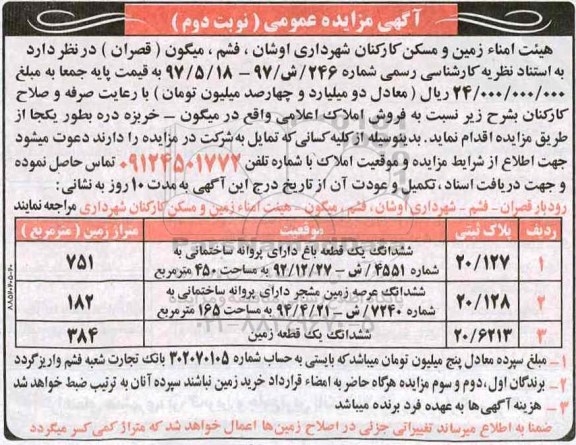 آگهی مزایده عمومی ( نوبت دوم )
هیئت امناء زمین و مسکن کارکنان شهرداری اوشان ، فشم ، میگون ( قصران ) در نظر دارد
به استناد نظریه کارشناسی رسمی شماره ۲۴۶/ش/۹۷ – ۹۷/۵/۱۸ به قیمت پایه جمعا به مبلغ
۲۴/۰۰۰/۰۰۰/۰۰۰ ریال ( معادل دو میلیارد و چهارصد میلیون تومان ) با رعایت صرفه و صلاح
کارکنان بشرح زیر نسبت به فروش املاک اعلامی واقع در میگون – خربزه دره بطور یکجا از
طریق مزایده اقدام نماید. بدینوسیله از کلیه کسانی که تمایل به شرکت در مزایده را دارند دعوت میشود
جهت اطلاع از شرایط مزایده و موقعیت املاک با شماره تلفن ۰۹۱۲۴۵۰۱۷۷۲ تماس حاصل نموده
و جهت دریافت اسناد ، تکمیل و عودت آن از تاریخ درج این آگهی به مدت ۱۰ روز به نشانی :
رودبار قصران – فشم – شهرداری اوشان ، فشم ، میگون – هیئت امناء زمین و مسکن کارکنان شهرداری مراجعه نمایند
ردیف پلاک ثبتی موقعیت متراژ زمین ( مترمربع )
۱ ۲۰/۱۲۷ ششدانگ یک قطعه باغ دارای پروانه ساختمانی به
شماره ۴۵۵۱/ش – ۹۲/۱۲/۲۷ به مساحت ۴۵۰ مترمربع ۷۵۱
۲ ۲۰/۱۲۸ ششدانگ عرصه زمین مشجر دارای پروانه ساختمانی به
شماره ۷۲۴۰/ش – ۹۴/۴/۲۱ به مساحت ۱۶۵ مترمربع ۱۸۲
۳ ۲۰/۶۲۱۳ ششدانگ یک قطعه زمین ۳۸۴
۱– مبلغ سپرده معادل پنج میلیون تومان میباشد که بایستی به حساب شماره ۳۰۲۰۷۰۱۰۵ بانک تجارت شعبه فشم واریز گردد
۲– برندگان اول ، دوم و سوم مزایده هرگاه حاضر به امضاء قرارداد خرید زمین نباشند سپرده آنان به ترتیب ضبط خواهد شد
۳– هزینه آگهی ها به عهده فرد برنده میباشد
ضمنا به اطلاع میرساند تغییراتی جزئی در اصلاح زمین ها اعمال خواهد شد که متراژ کمی کسر میگردد